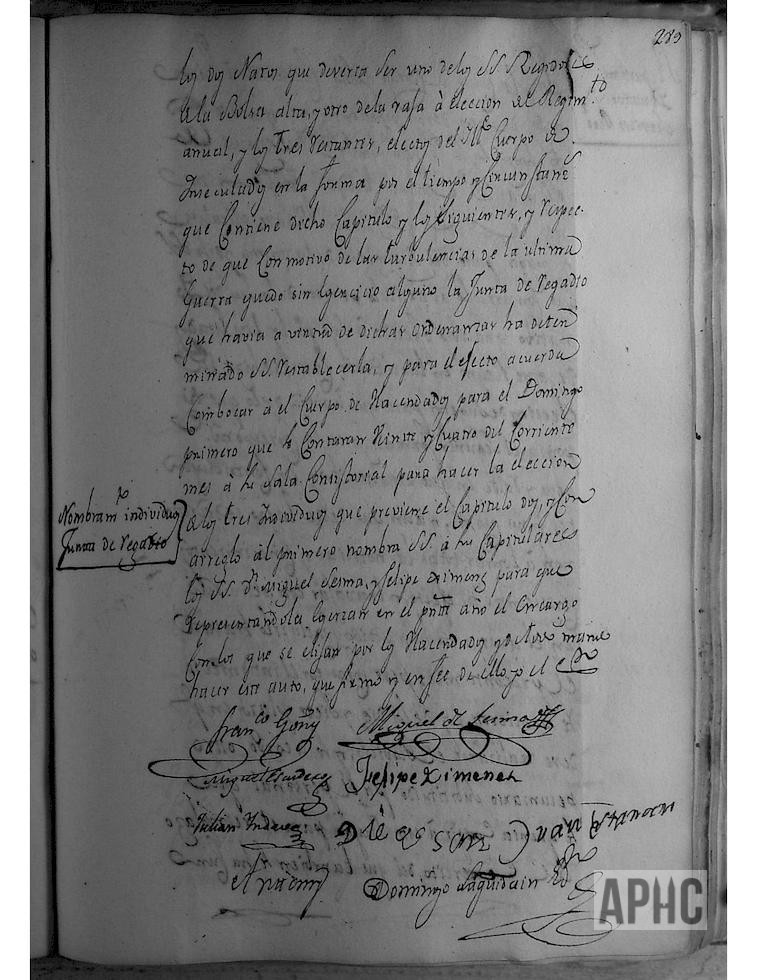 289
los dos Natos que deveria ser uno de los SS. Regidores
de la Bolsa alta, y otro de la vaja à eleccion del Regim.to
anual, y los tres restantes, electos del Ill.e Cuerpo de
Inseculados en la forma por el tiempo y Circunstan.s
que Contiene dicho Capitulo y los siguientes, y respec-
to de que Con motivo de las turbulencias de la ultima
Guerra quedo sin egercicio alguno la Junta de Regadio
que havia a virtud de dichas ordenanzas ha deter-
minado SS. restablecerla, y para el efecto acuerda
Combocar à el Cuerpo de Hacendados para el Domingo
primero que se Contaran Veinte y Cuatro del Corriente
mes à su Sala Consistorial para hacer la eleccion
de los tres Individuos que previene el Capitulo dos, y Con
Nombram.to individuos
Junta de Regadio
arreglo al primero nombra SS. à sus Capitulares
los SS. D.n Miguel Sesma, y Felipe Ximenez para que
Representandola egerzan en el pnte año el Encargo
Con los que se elijan por los Hacendados y de
hacer este auto, que firmo y en fee de ello yo el Ess.no
Fran.co Goñy
Miguel de Sesma
Miguel
Felipe Ximenez
Julian
Juan
Domingo Laquidain
APHC